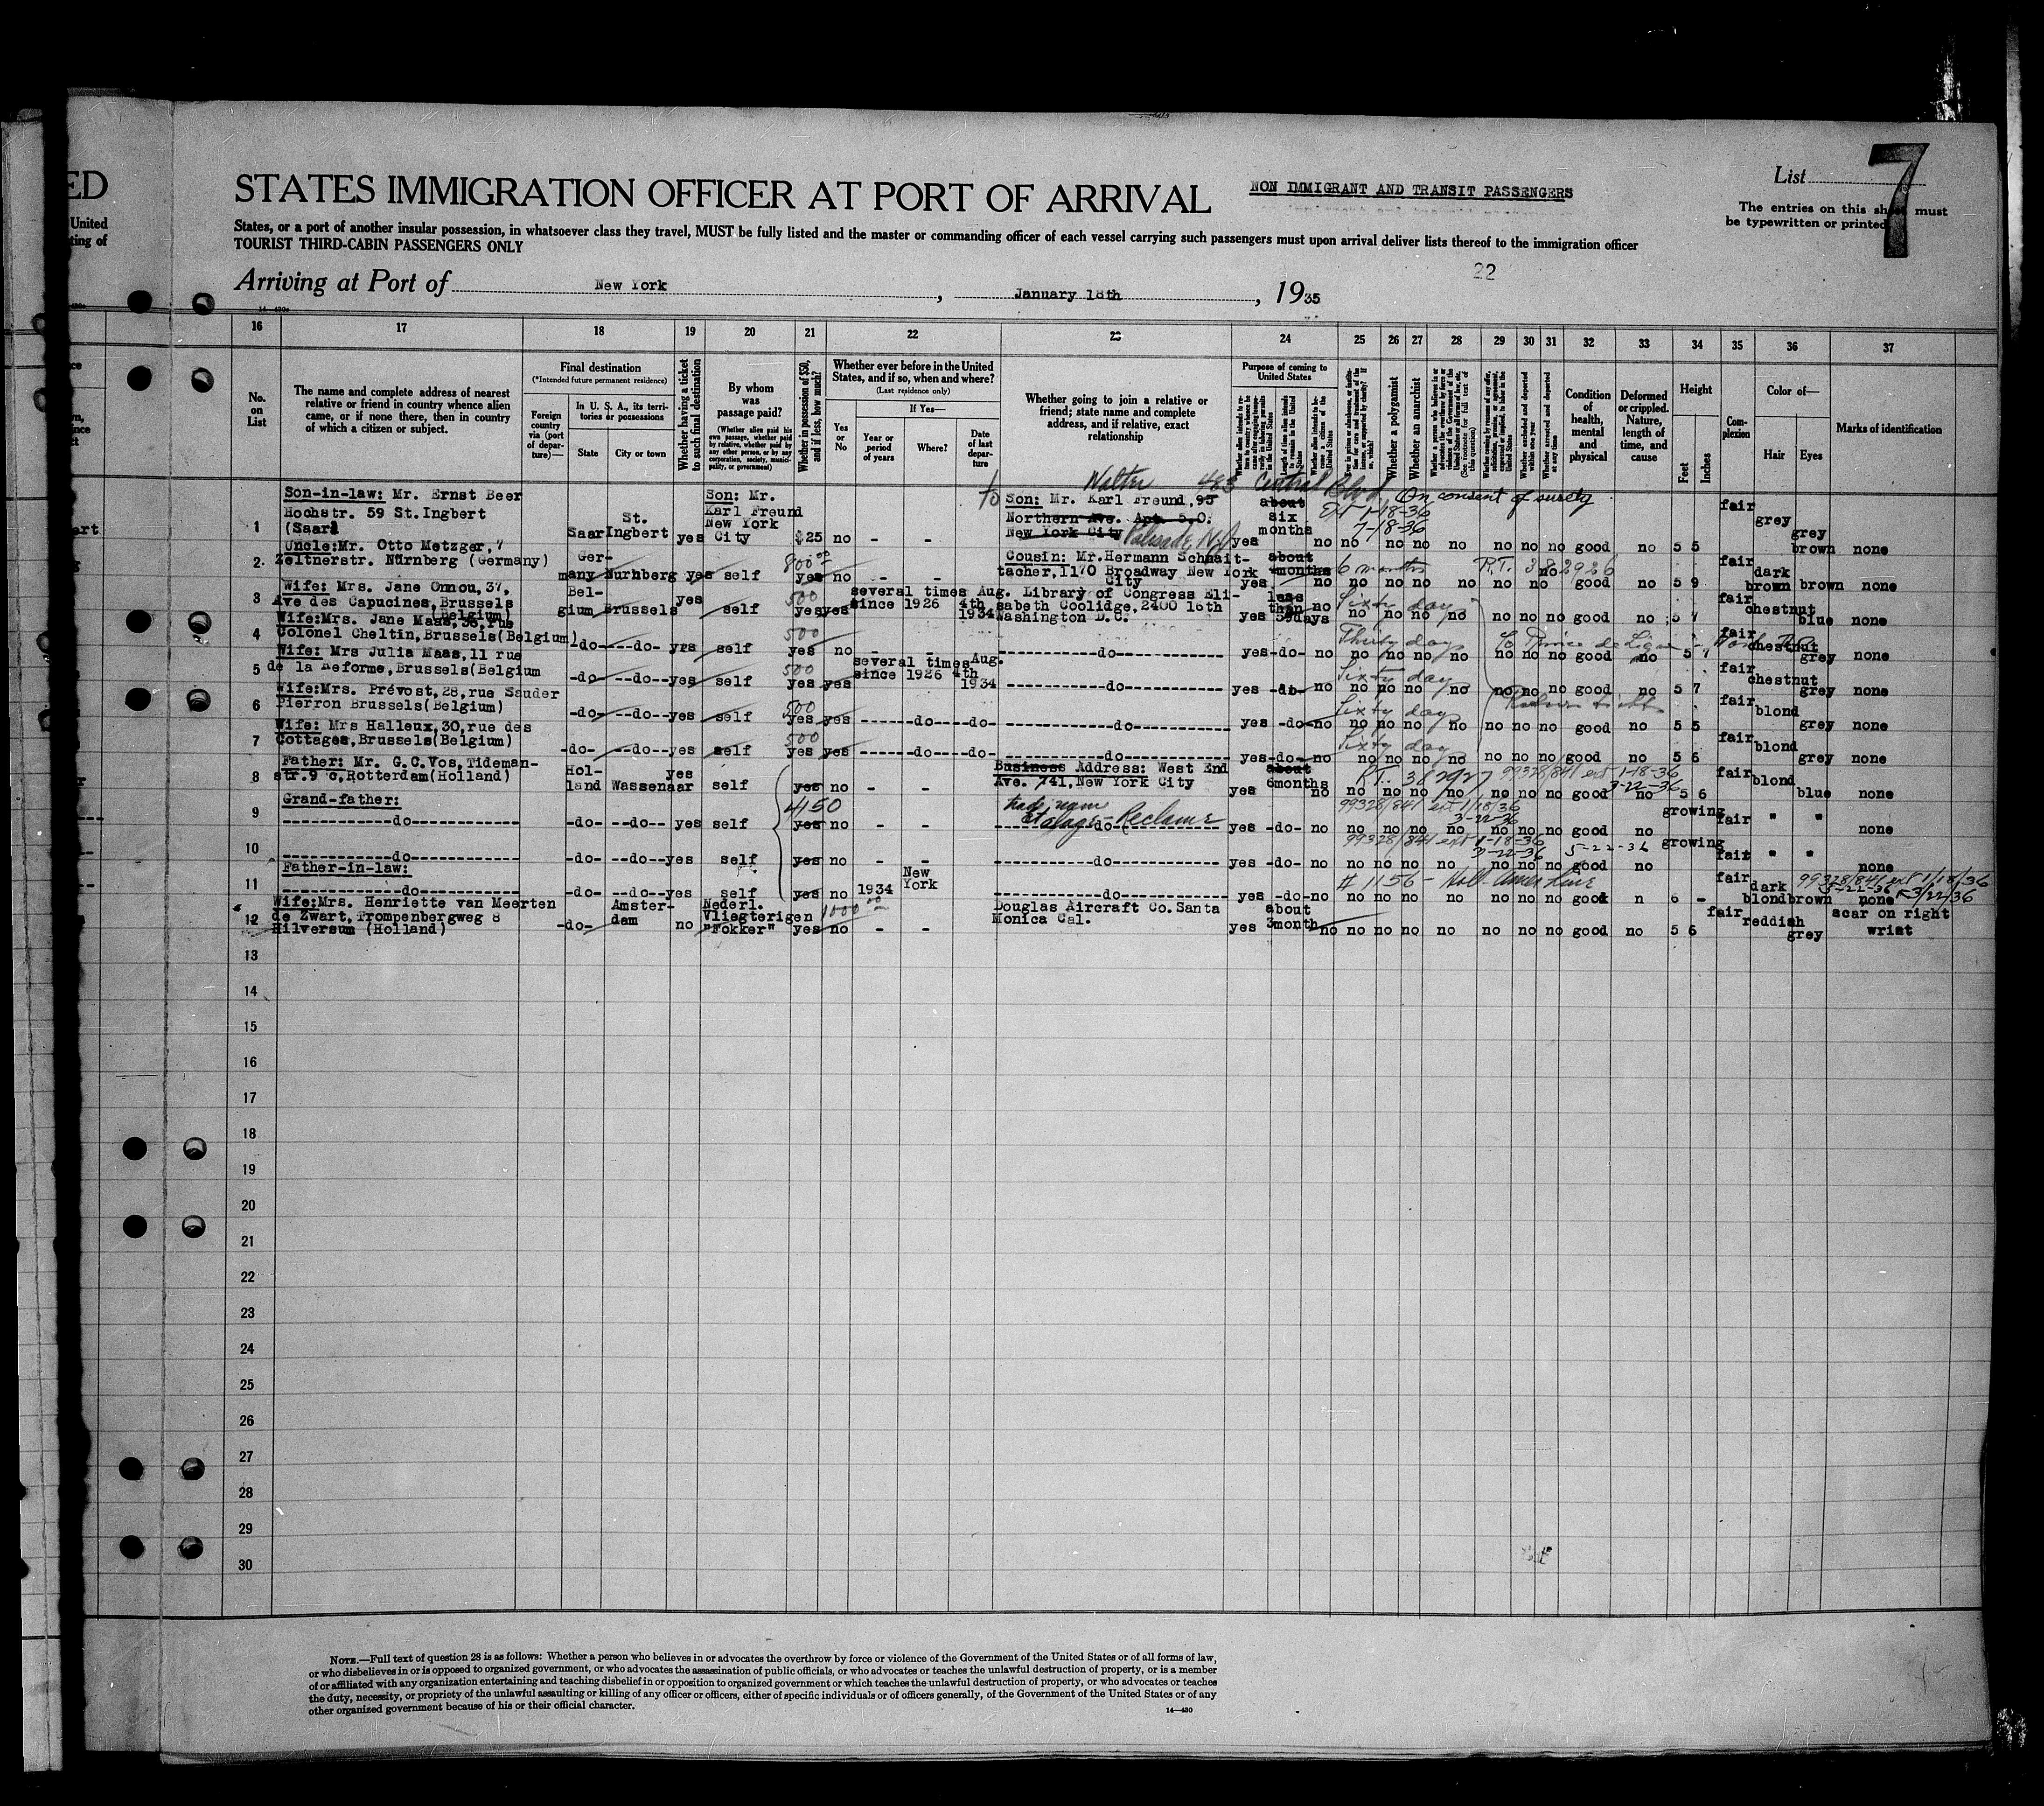 ED
United
ting of
STATES IMMIGRATION OFFICER AT PORT OF ARRIVAL
NON IMMIGRANT AND TRANSIT PASSENGERS
List
7
The entries on this sheet must
be typewritten or printed
States, or a port of another insular possession, in whatsoever class they travel, MUST be fully listed and the master or commanding officer of each vessel carrying such passengers must upon arrival deliver lists thereof to the immigration officer
TOURIST THIRD-CABIN PASSENGERS ONLY
22
Arriving at Port of New York, January 18th, 1935
16 17 18 19 20 21 22 23 24 25 26 27 28 29 30 31 32 33 34 35 36 37
No. on List
The name and complete address of nearest
relative or friend in country whence alien
came, or if none there, then in country
of which a citizen or subject.
Final destination
(*Intended future permanent residence)
Foreign country via (port of departure)—
In U. S. A., its territories or possessions
State
City or town
Whether having a ticket to such final destination
By whom was passage paid?
(Whether alien paid his own passage, whether paid by relative, whether paid by any other person, or by any corporation, society, municipality, or government)
Whether in possession of $50, and if less, how much?
Whether ever before in the United
States, and if so, when and where?
(Last residence only)
Yes or No
If Yes—
Year or period of years
Where?
Date of last departure
Whether going to join a relative or
friend; state name and complete
address, and if relative, exact
relationship
Purpose of coming to United States
Whether a polygamist
Whether an anarchist
Condition of health, mental and physical
Deformed or crippled. Nature, length of time, and cause
Height
Feet
Inches
Complexion
Color of—
Hair
Eyes
Marks of identification
Walter 483 Central Blvd. On consent of surety
1 Son-in-law: Mr. Ernst Beer
Hochstr. 59 St.Ingbert
(Saar)
Saar St. Ingbert yes Son: Mr. Karl Freund New York City $25 no - -
Son: Mr. Karl Freund, 95
Northern Ave. Apt. 5.O.
New York City Palisade NJ
about six months yes no Ext 1-18-36 7-18-36
no no no no no no no no good no 5 5 fair grey grey brown none
2 Uncle:Mr. Otto Metzger, 7
Zeltnerstr. Nürnberg (Germany)
Germany Nurnberg yes self 800.00 yes no - -
Cousin: Mr.Hermann Schnaittacher, 1170 Broadway New York City
about 4months yes no 6 months R.T. 382926
no no no no no no no good no 5 9 fair dark brown brown none
3 Wife: Mrs. Jane Onnou, 37,
Ave des Capucines, Brussels
(Belgium)
Belgium Brussels yes self 500 yes yes several times since 1926 Aug. 4th 1934
Library of Congress Elisabeth Coolidge, 2400 16th
Washington D.C.
less than 59days yes no Sixty day
no no no no no no no good no 5 7 fair chestnut blue none
4 Wife:Mrs. Jane Maas, 36, rue
Colonel Cheltin, Brussels(Belgium)
-do- --do- yes self 500 yes no - - ---do---
yes -do- no Thirty day
no no no no no no no good no 5 7 fair chestnut grey none
5 Wife: Mrs Julia Maas, 11 rue
de la Reforme, Brussels(Belgium
-do- --do-- yes self 500 yes yes several times since 1926 Aug. 4th 1934 ---do---
yes -do- no Sixty day
no no no no no no no good no 5 7 fair chestnut grey none
6 Wife:Mrs. Prévost, 28, rue Sauder
Pierron Brussels(Belgium)
-do- --do-- yes self 500 yes yes ---do--- ---do---
yes -do- no Sixty day
no no no no no no no good no 5 5 fair blond grey none
7 Wife: Mrs Halleux, 30, rue des
Cottages, Brussels(Belgium)
-do- --do-- yes self 500 yes yes ---do--- -do- ---do---
yes -do- no Sixty day
no no no no no no no good no 5 6 fair blond grey none
8 Father: Mr. G.C.Vos, Tideman-
str.9 c, Rotterdam(Holland)
Holland Wassenaar yes self yes no - -
Business Address: West End
Ave. 741, New York City
about 6months yes no R.T. 382927 99328/841 ext 1-18-36 3-22-36
no no no no no no no good no 5 6 fair blond blue none
9 Grand-father:
---do---
-do- --do-- yes self 4150 yes no - -
trade name Etalage-Reclame ---do---
yes -do- no 99328/841 ext 1/18/36 3-22-36
no no no no no no no good no growing fair " " none
10 ---do---
-do- --do-- yes self yes no - - ---do---
yes -do- no 99328/841 ext 1-18-36 3-22-36 5-22-36
no no no no no no no good no growing fair " " none
11 Father-in-law:
---do---
-do- --do-- yes self yes no 1934 New York ---do---
yes -do- no # 1156 - Holl. Amer Line
no no no no no no no good n 6 - fair dark blond brown none 99328/841 ext 1/18/36 5-22-36 3/22/36
12 Wife:Mrs. Henriette van Meerten
de Zwart, Trompenbergweg 8
Hilversum (Holland)
-do- Amsterdam no Nederl. Vliegterigen "Fokker" 1000.00 yes no - -
Douglas Aircraft Co. Santa
Monica Cal.
about 3month yes no
no no no no no no no good no 5 6 fair reddish grey scar on right wrist
13
14
15
16
17
18
19
20
21
22
23
24
25
26
27
28
29
30
NOTE.—Full text of question 28 is as follows: Whether a person who believes in or advocates the overthrow by force or violence of the Government of the United States or of all forms of law,
or who disbelieves in or is opposed to organized government, or who advocates the assassination of public officials, or who advocates or teaches the unlawful destruction of property, or is a member
of or affiliated with any organization entertaining and teaching disbelief in or opposition to organized government or which teaches the unlawful destruction of property, or who advocates or teaches
the duty, necessity, or propriety of the unlawful assaulting or killing of any officer or officers, either of specific individuals or of officers generally, of the Government of the United States or of any
other organized government because of his or their official character.
14—430